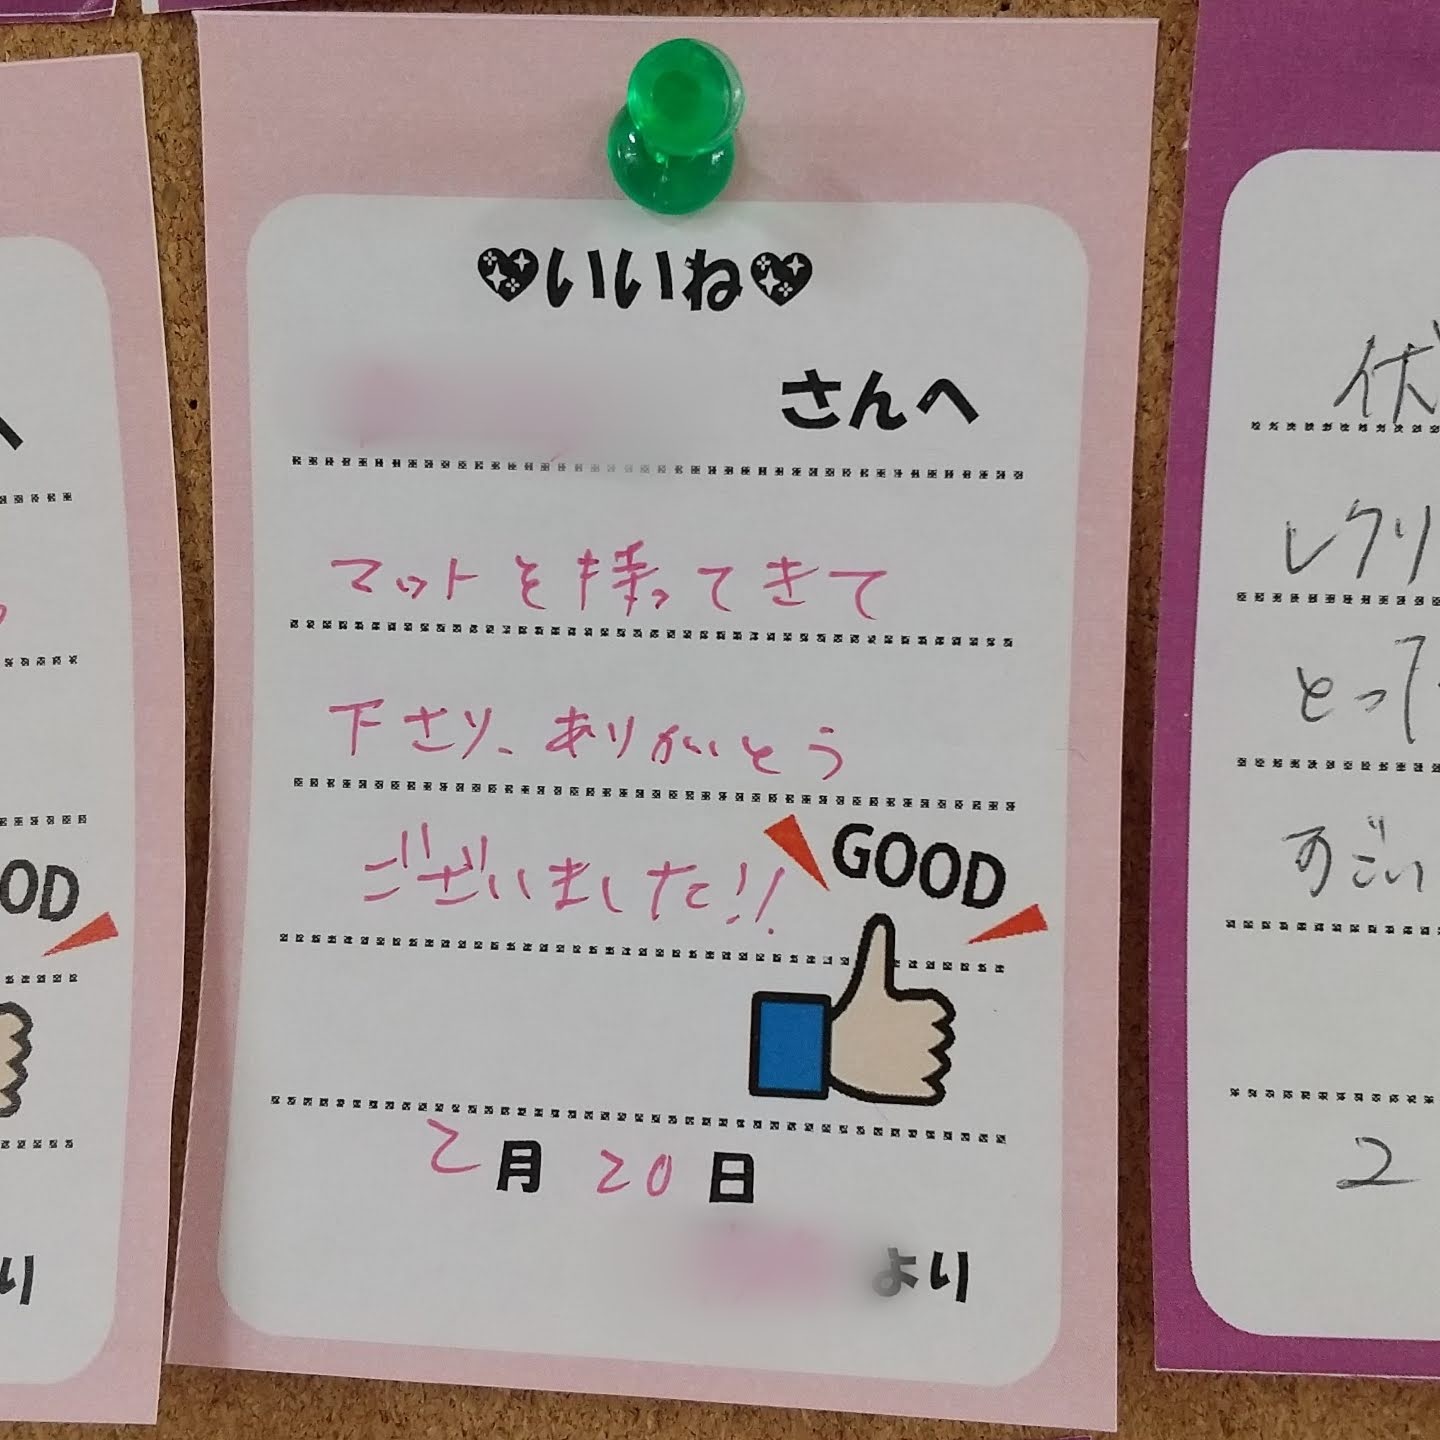 💖いいね💖
さんへ
マットを持ってきて
下さり、ありがとう
ございました!!
GOOD
2月20日
より
へ
OD
り
レクリ
とって
すごい
2